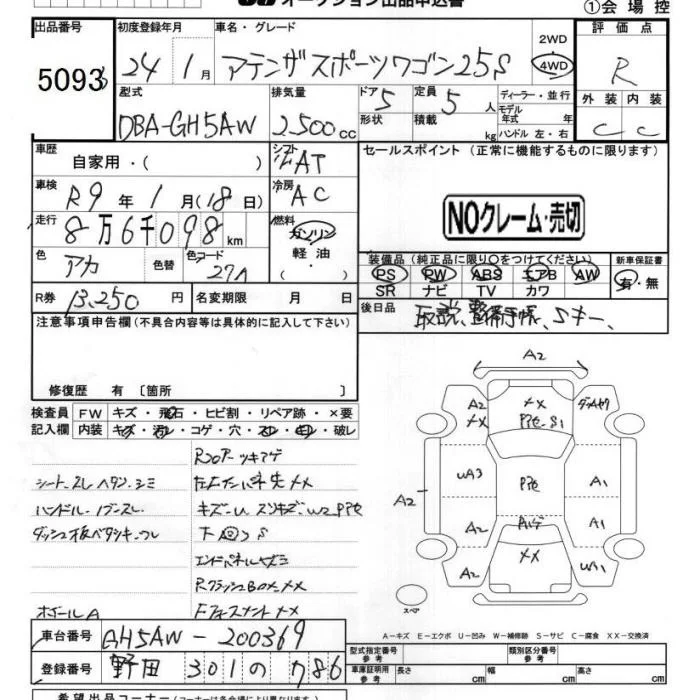 オークション出品申込書
①会場控
出品番号 初度登録年月 車名・グレード 2WD・4WD 評価点
5093 24年1月 アテンザスポーツワゴン25S R
型式 排気量 ドア 5 定員 5人 ディーラー・並行 外装 内装
DBA-GH5AW 2,500cc 形状 積載 kg モデル年式 年 ハンドル 左・右 C C
車歴 自家用・( ) シフト AT セールスポイント (正常に機能するものに限ります)
車検 R9年1月(18日) 冷房 AC
NOクレーム・売切
走行 8万6千098km 燃料 ガソリン・軽油・( )
色 アカ 色替 色コード 27A
装備品(純正品に限り○をつけてください) 新車保証書
PS PW ABS エアB AW 有・無
SR ナビ TV カワ
R券 13,250円 名変期限 月 日
後日品 取説、整備手帳、Sキー、
注意事項申告欄(不具合内容等は具体的に記入して下さい)
修復歴 有〔箇所 〕
検査員記入欄 FW キズ・飛石・ヒビ割・リペア跡・×要
内装 キズ・汚レ・コゲ・穴・スレ・破レ
シートスレ ヘタリ シミ
ハンドル・ノブスレ
ホイールA
Rフロアーツキアゲ
下回りS
エンドパネル
RクラッシュBOX XX
A2
A2 XX
XX
PPセ S1
UA3
PPセ
A1
A2
A2
A1
A2
XX
UA1
スペア
A-キズ E-エクボ U-凹み W-補修跡 S-サビ C-腐食 XX-交換済
車台番号 GH5AW-200369
登録番号 野田 301 の 786
型式指定番号 類別区分番号
車庫証明用参考 長さ cm 幅 cm 高さ cm
希望出品コーナー(コーナーは各会場により異なります)